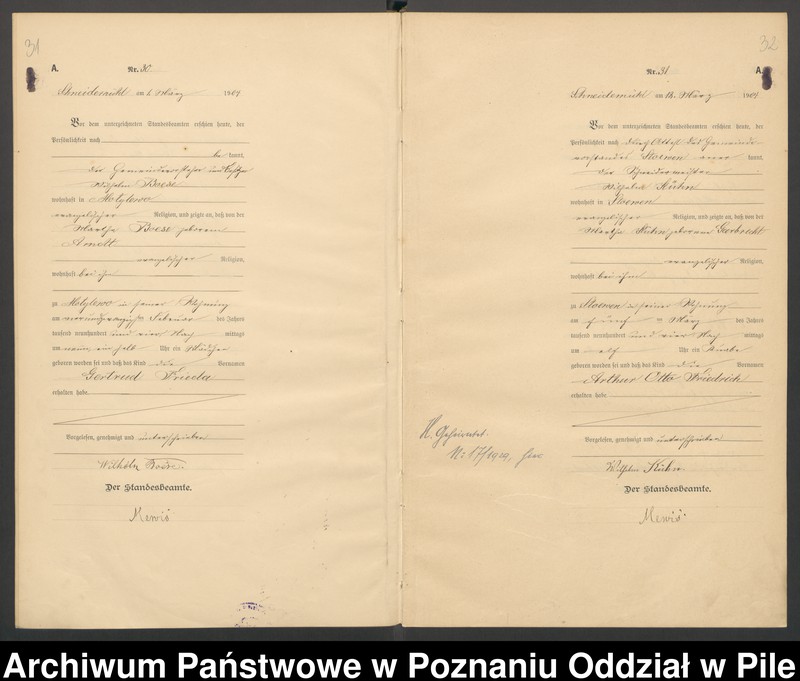 31
A.
Nr. 30.
Schneidemühl am 1. März 1904
Vor dem unterzeichneten Standesbeamten erschien heute, der
Persönlichkeit nach
be kannt,
der Gemeindevorsteher und
Wilhelm Boese
wohnhaft in Motylewo
evangelischer Religion, und zeigte an, daß von der
Martha Boese geborenen
Arndt
evangelischer Religion,
wohnhaft bei ihm
zu Motylewo in seiner Wohnung
am vierundzwanzigsten Februar des Jahres
tausend neunhundert und vier Nach mittags
um neun ein halb Uhr ein Mädchen
geboren worden sei und daß das Kind die Vornamen
Gertrud Frieda
erhalten habe.
Vorgelesen, genehmigt und unterschrieben
Wilhelm Boese.
Der Standesbeamte.
Mewis
32
A.
Nr. 31
Schneidemühl am 18. März 1904
Vor dem unterzeichneten Standesbeamten erschien heute, der
Persönlichkeit nach durch Attest des Gemeinde
vorstandes Stoewen kannt,
der Schneidermeister
Wilhelm Kühn
wohnhaft in Stoewen
evangelischer Religion, und zeigte an, daß von der
Martha Kühn geborenen
evangelischer Religion,
wohnhaft bei ihm
zu Stoewen in seiner Wohnung
am fünf März des Jahres
tausend neunhundert und vier Nach mittags
um elf Uhr ein Knabe
geboren worden sei und daß das Kind die Vornamen
Arthur Otto Friedrich
erhalten habe
H. Geheiratet.
Nr 17/1929,
Vorgelesen, genehmigt und unterschrieben
Wilhelm Kühn.
Der Standesbeamte.
Mewis.
Archiwum Państwowe w Poznaniu Oddział w Pile